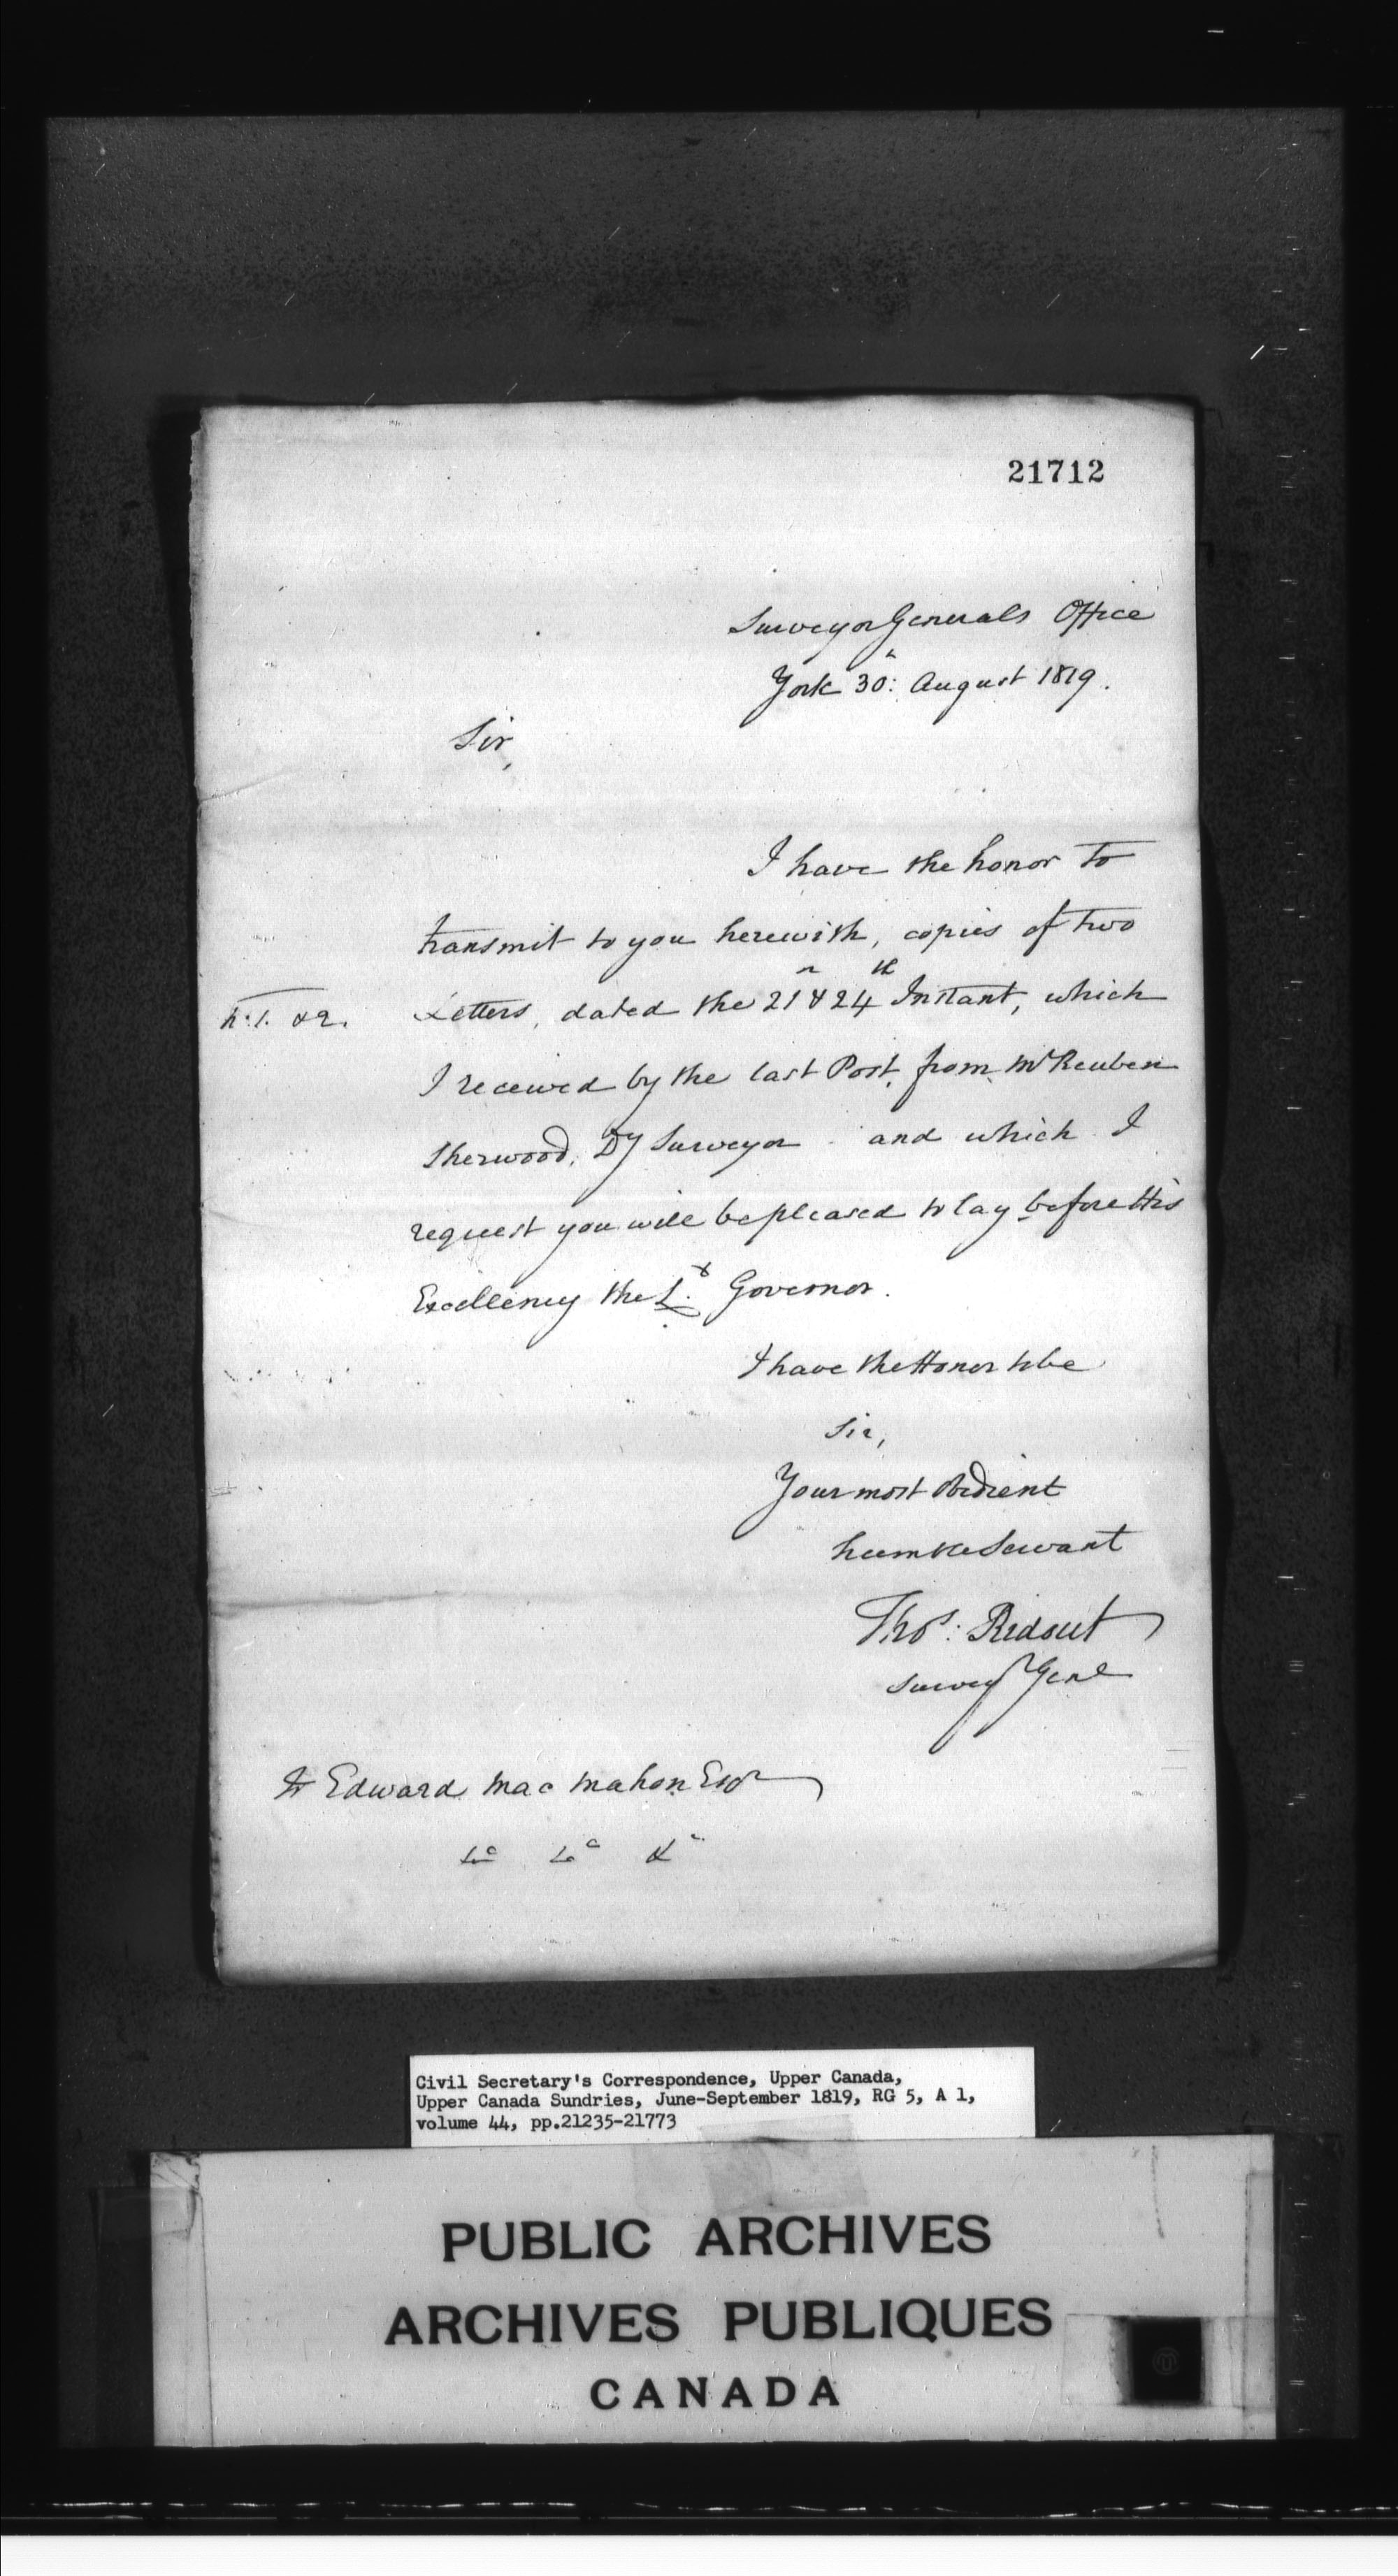 21712
Surveyor Generals Office
York 30th August 1819.
Sir,
I have the honor to
transmit to you herewith, copies of two
Letters, dated the 21st & 24th Instant, which
N: 1. & 2.
I received by the last Post, from Mr Reuben
Sherwood, Dy Surveyor and which I
request you will be pleased to lay before His
Excellency the Lt. Governor.
I have the Honor to be
Sir,
Your most Obedient
humble Servant
Thos: Ridout
Surveyr Genl
To Edward Mac Mahon Esqr
&c &c &c
Civil Secretary's Correspondence, Upper Canada,
Upper Canada Sundries, June-September 1819, RG 5, A 1,
volume 44, pp.21235-21773
PUBLIC ARCHIVES
ARCHIVES PUBLIQUES
CANADA